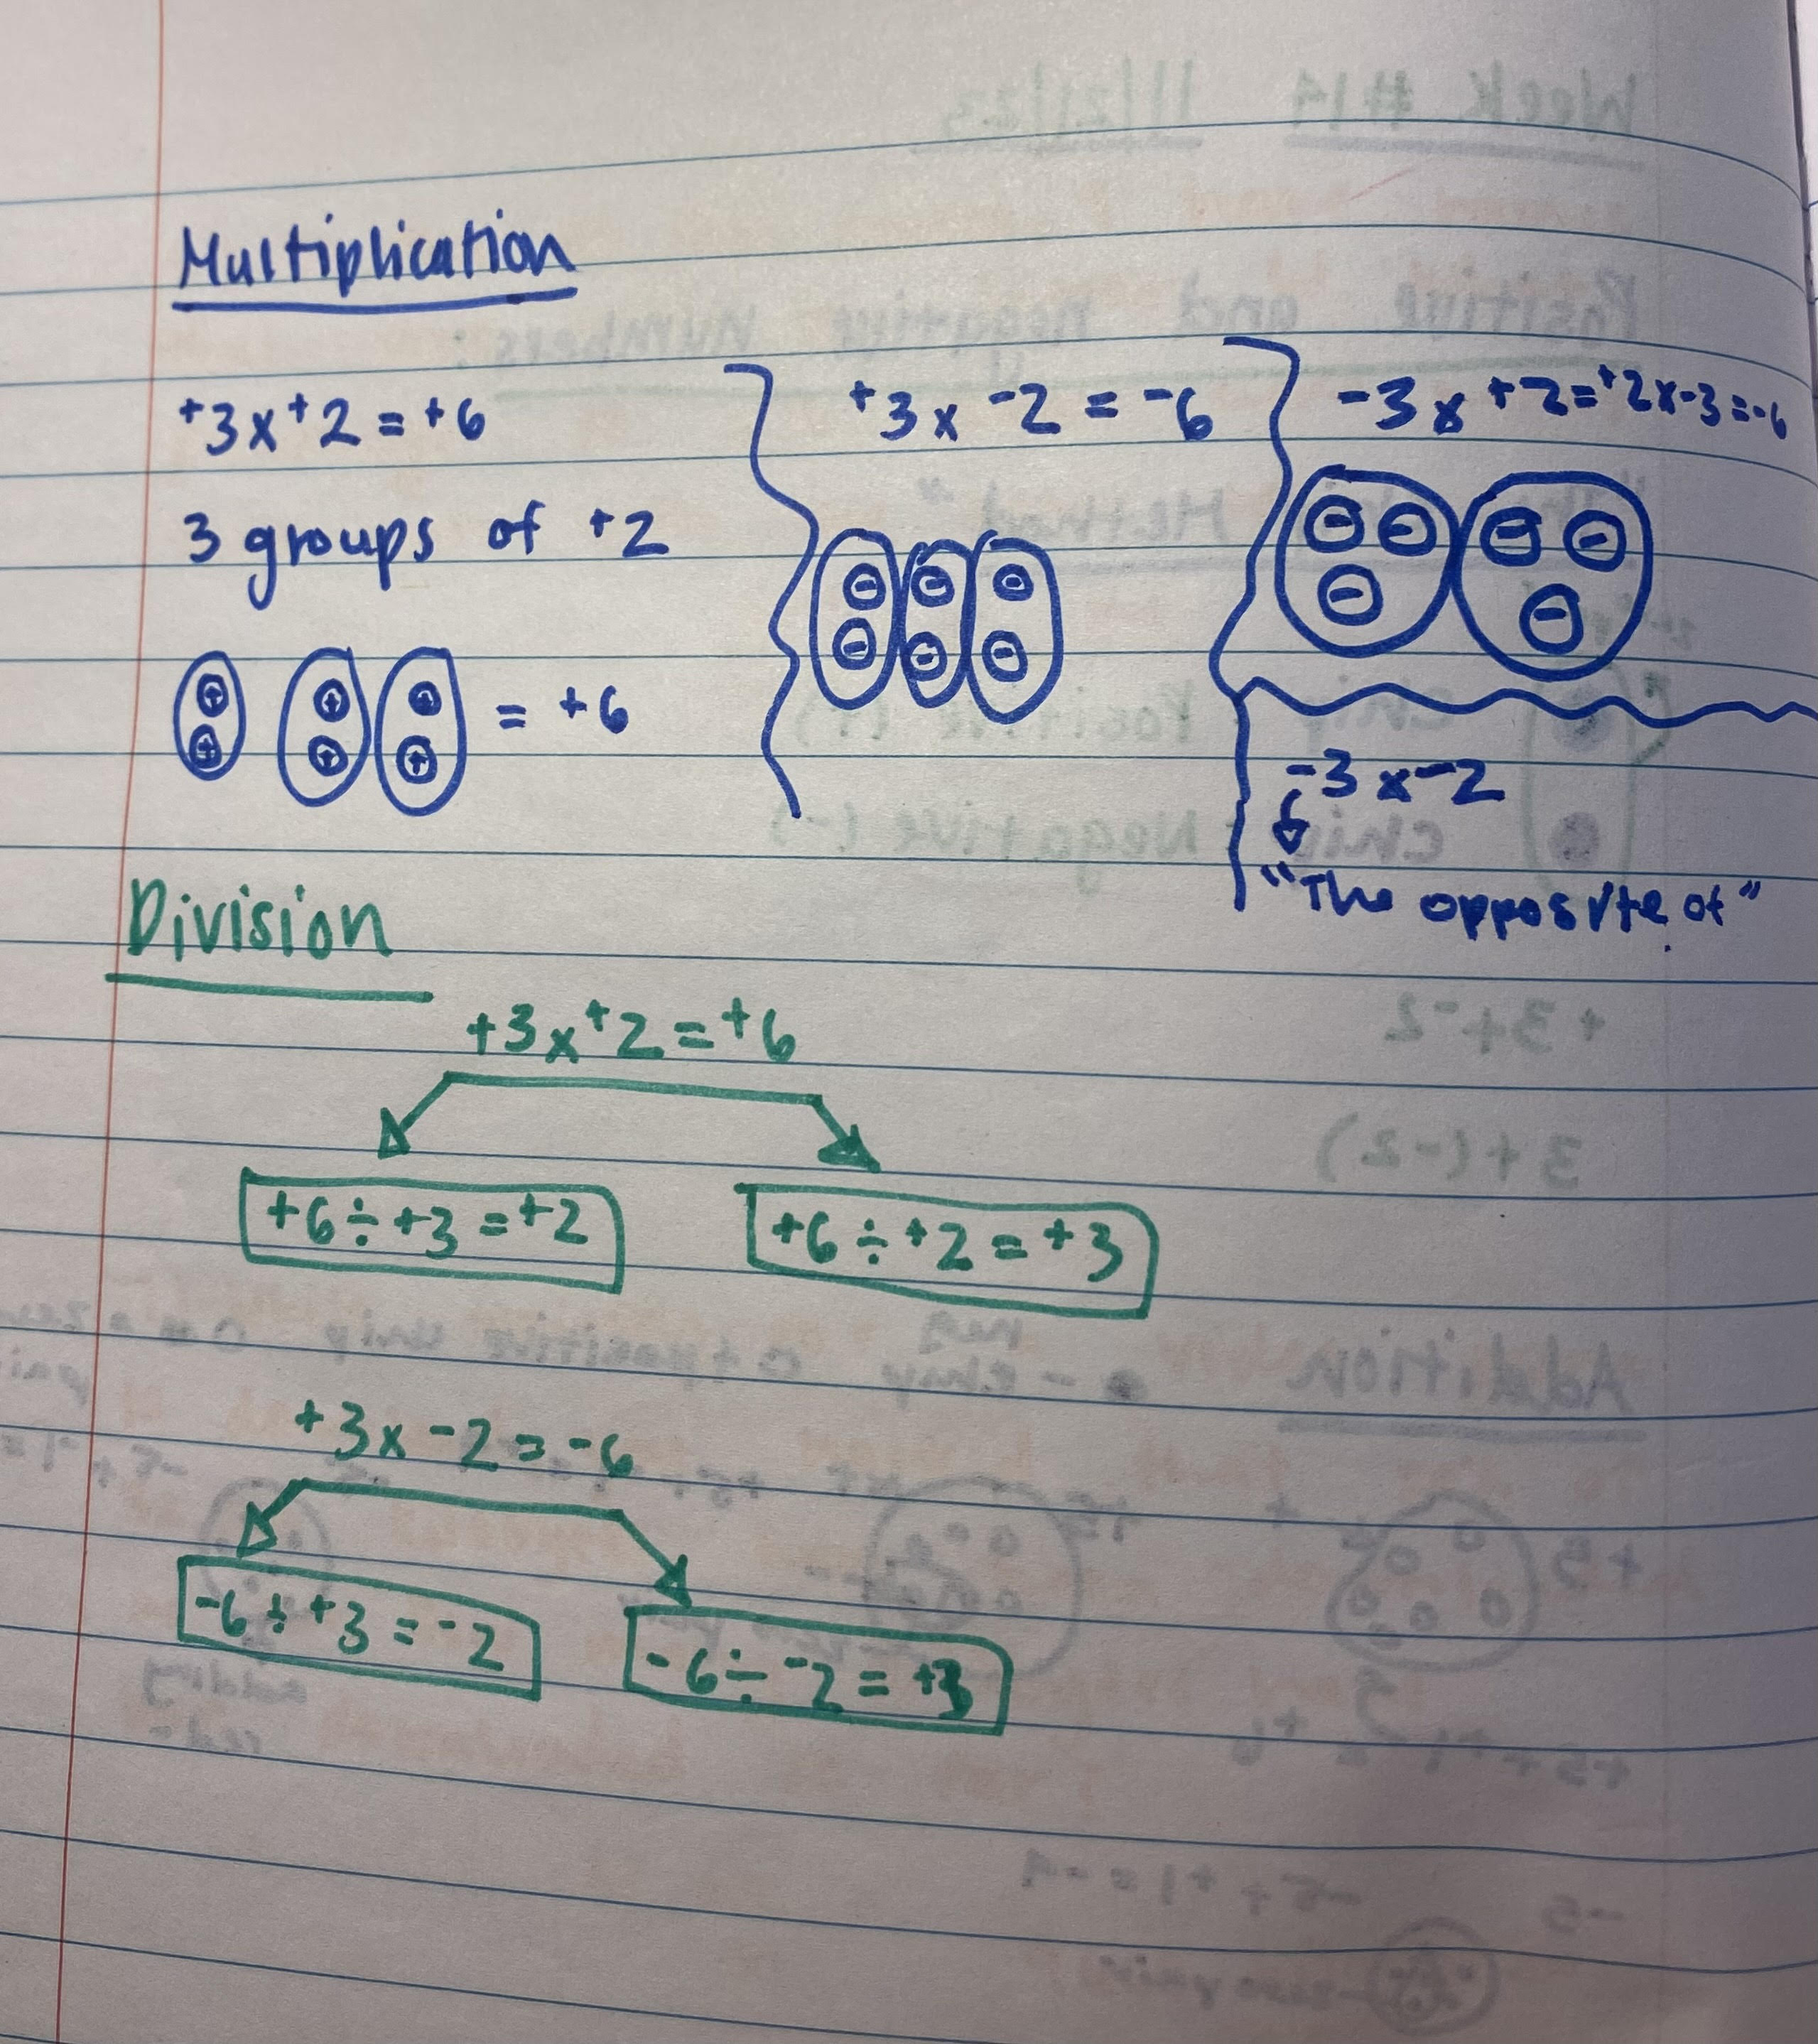 Multiplication
+3x+2=+6
3 groups of +2
= +6
+3x -2 = -6
-3x +2=+2x-3=-6
-3x-2
"The opposite of"
Division
+3x+2=+6
+6÷+3=+2
+6÷+2=+3
+3x-2=-6
-6÷+3=-2
-6÷-2=+3